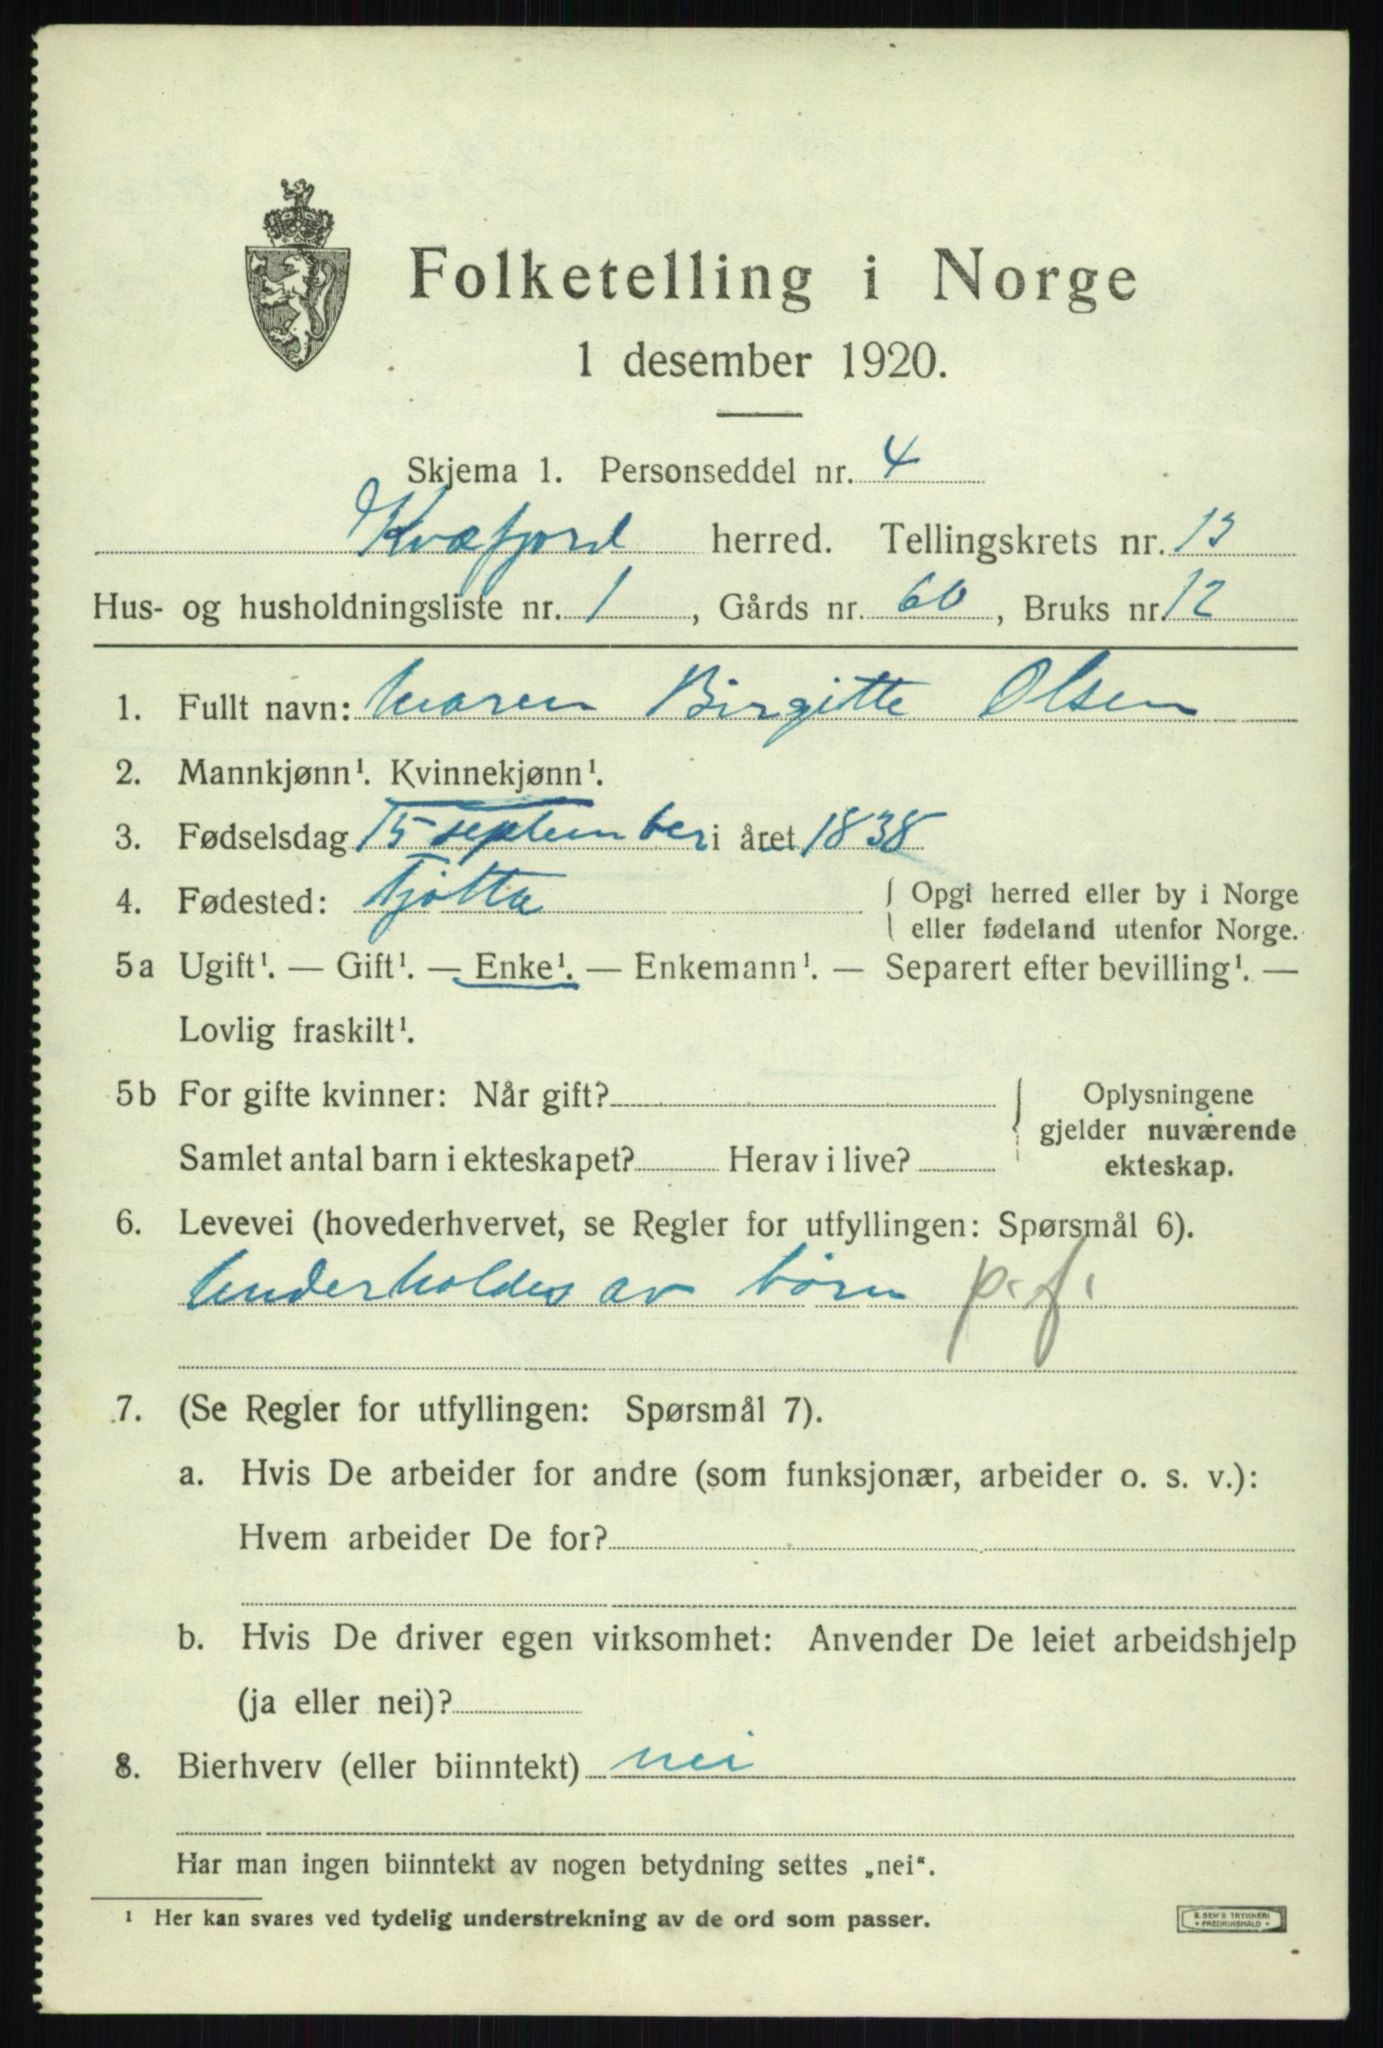 Folketelling i Norge
1 desember 1920.
Skjema 1. Personseddel nr. 4
Kvæfjord herred. Tellingskrets nr. 13
Hus- og husholdningsliste nr. 1, Gårds nr. 60, Bruks nr. 12
1. Fullt navn: Maren Birgitte Olsen
2. Mannkjønn¹. Kvinnekjønn¹.
3. Fødselsdag 15 september i året 1838
4. Fødested: Tjøtta { Opgi herred eller by i Norge
eller fødeland utenfor Norge.
5a Ugift¹. — Gift¹. — Enke¹. — Enkemann¹. — Separert efter bevilling¹. —
Lovlig fraskilt¹.
5b For gifte kvinner: Når gift? } Oplysningene
gjelder nuværende
Samlet antal barn i ekteskapet? Herav i live? ekteskap.
6. Levevei (hovederhvervet, se Regler for utfyllingen: Spørsmål 6).
Underholdes av børn p. f.
7. (Se Regler for utfyllingen: Spørsmål 7).
a. Hvis De arbeider for andre (som funksjonær, arbeider o. s. v.):
Hvem arbeider De for?
b. Hvis De driver egen virksomhet: Anvender De leiet arbeidshjelp
(ja eller nei)?
8. Bierhverv (eller biinntekt) nei
Har man ingen biinntekt av nogen betydning settes „nei“.
¹ Her kan svares ved tydelig understrekning av de ord som passer.
E. SEM'S TRYKKERI
FREDRIKSHALD